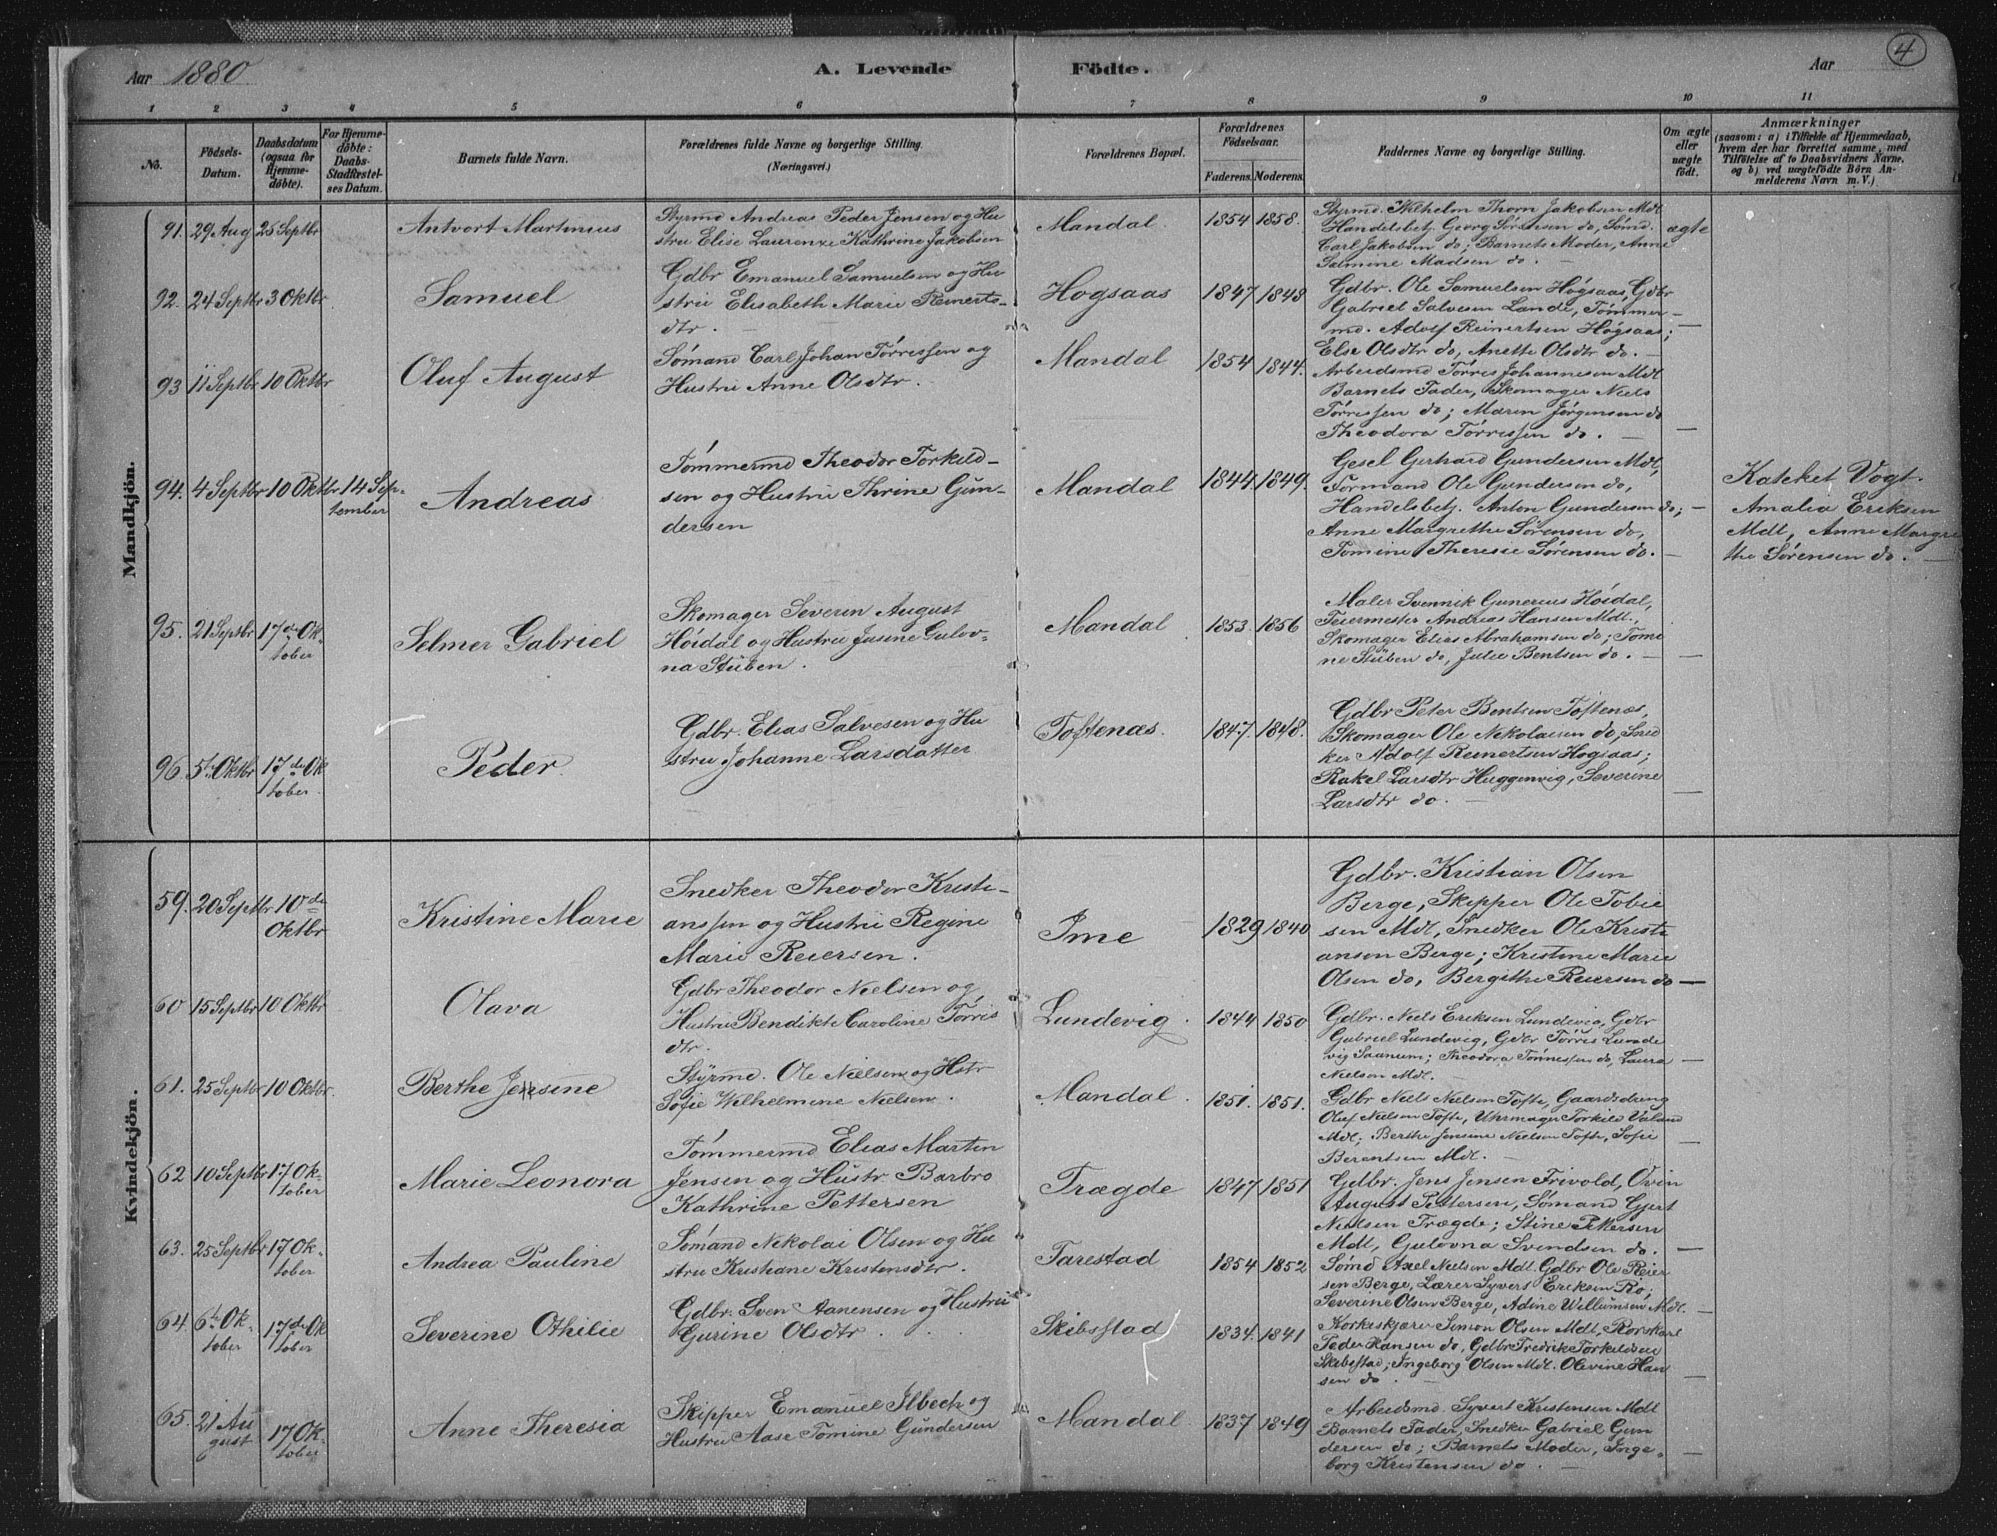 Aar 1880
A. Levende Födte.
Aar
4
1 2 3 4 5 6 7 8 9 10 11
No.
Födsels-Datum.
Daabsdatum (ogsaa for Hjemmedöbte).
For Hjemmedöbte: Daabs-Stadfæstelses Datum.
Barnets fulde Navn.
Forældrenes fulde Navne og borgerlige Stilling.
(Næringsvei.)
Forældrenes Bopæl.
Forældrenes Födselsaar.
Faderens. Moderens.
Faddernes Navne og borgerlige Stilling.
Om ægte eller uægte født.
Anmærkninger
(saasom: a) i Tilfælde af Hjemmedaab,
hvem der har forrettet samme, med
Tilföielse af to Daabsvidners Navne,
og b) ved uægtefödte Börn An-
melderens Navn m. V.)
Mandkjön.
91. 29 Aug 25 Septbr
Antvort Martinius
Styrmd Andreas Peder Jensen og Hu
stru Elise Laurenze Kathrine Jakobsen
Mandal. 1854 1858.
Styrmd. Wilhelm Thorn Jakobsen Mdl
Handelsbetj Georg Sørensen do, Sømd.
Carl Jakobsen do; Barnets Moder, Anne
Salmine Madsen do. —
ægte
92. 24 Septbr 3 Oktbr
Samuel
Gdbr Emanuel Samuelsen og Hu
stru Elisabeth Marie Reinerts-
dtr. —
Høgsaas 1847 1843
Gdbr. Ole Samuelsen Høgsaas, Gdbr
Gabriel Salvesen Lande, Tømmer-
md. Adolf Reinertsen Høgsaas;
Else Olsdtr do, Anette Olsdtr do. —
—
93 11 Septbr 10 Oktbr
Oluf August
Sømand Carl Johan Tørressen og
Hustru Anne Olsdtr.
Mandal 1854 1844.
Arbeidsmd Tørris Johannesen Mdl
Barnets Fader, Skomager Niels
Tørressen do; Maren Jørgensen do
Theodora Tørressen do. —
—
94. 4 Septbr 10 Oktbr 14 Sep-
tember
Andreas
Tømmermd Theodor Torkild-
sen og Hustru Thrine Gun-
dersen
Mandal 1844 1849.
Gesel Gerhard Gundersen Mdl,
Formand Ole Gundersen do,
Handelsbetj. Anton Gundersen do;
Anne Margrethe Sørensen do,
Tomine Theresie Sørensen do. —
—
Kateket Vogt.
Amalia Eriksen
Mdl, Anne Margre
the Sørensen do. —
95. 21 Septbr 17de Ok-
tober
Selmer Gabriel
Skomager Severin August
Høidal og Hustru Jusine Gulov-
na Stuben.
Mandal 1853. 1856
Maler Svennik Gunerius Høidal,
Feiermester Andreas Hansen Mdl.,
Skomager Elias Abrahamsen do; Tomi
ne Stuben do, Julie Bentsen do. —
—
96. 5te Oktbr 17de Ok
tober.
Peder
Gdbr. Elias Salvesen og Hu
stru Johanne Larsdatter
Toftenæs. 1847. 1848.
Gdbr Peter Bentsen Toftenæs,
Skomager Ole Nikolaisen do, Sned
ker Adolf Reinertsen Høgsaas;
Rakel Larsdtr Huggenvig, Severine
Larsdtr do. —
—
Kvindekjön.
59. 20 Septbr 10de
Oktbr
Kristine Marie
Snedker Theodor Kristi-
anssen og Hustru Regine
Marie Reiersen.
Ime 1829 1840
Gdbr. Kristian Olsen
Berge, Skipper Ole Tobie
sen Mdl, Snedker Ole Kristi
anson Berge; Kristine Marie
Olsen do, Bergithe Reiersen do —
60 15 Septbr 10 Oktbr
Olava
Gdbr Theodor Nielsen og
Hustru Bendikte Caroline Tørris
dtr.
Lundevig. 1844 1850
Gdbr. Niels Eriksen Lundevig, Gdbr
Gabriel Lundevig, Gdbr Tørris Lunde
vig Saanum; Theodora Tønnessen do, Laura
Nielsen Mdl.
—
61. 25 Septbr 10 Oktbr.
Berthe Jensine
Styrmd. Ole Nielsen og Hstr
Sofie Wilhelmine Nielsen.
Mandal. 1851. 1851.
Gdbr Niels Nielsen Tofte, Gaardsdreng
Oluf Nielsen Tofte, Uhrmager Torkild Valand
Mdl; Berthe Jensine Nielsen Tofte, Sofie
Berentsen Mdl. —
—
62 10 Septbr 17 Ok-
tober
Marie Leonora
Tømmermd Elias Martin
Jensen og Hustr Barbro
Kathrine Pettersen
Trægde 1847 1851
Gdbr. Jens Jensen Frivold,
August Pettersen, Sømand Gjert
Nielsen Trægde; Stine Pettersen
Mdl, Gulovna Svendsen do. —
63. 25 Septbr 17 Ok-
tober
Andrea Pauline
Sømand Nikolai Olsen og Hu
stru Kristiane Kristensdtr.
Tarestad 1854 1852
Sømd Axel Nielsen Mdl. Gdbr Ole Reier
sen Berge, Lærer Syvert Eriksen Ro;
Severine Olsen Berge, Adine Willumsen Mdl. —
64. 6te Ok-
tober 17de Ok
tober
Severine Othilie
Gdbr. Sven Aanensen og Hustru
Gurine Olsdtr.
Skibsstad 1834. 1841
Korkeskjærer Simon Olsen Mdl, Rorskarl
Peder Hansen do, Gdbr Fredrik Torkildsen
Skibsstad; Ingeborg Olsen Mdl. Olevine Han
sen do. —
—
65. 21 Au
gust 17 Ok-
tober
Anne Theresia
Skipper Emanuel Ilbeck og
Hustru Aase Tomine Gundersen
Mandal 1837 1849
Arbeidsmd. Syvert Kristensen Mdl
Barnets Fader, Snedker Gabriel Gun
dersen do; Barnets Moder, Inge-
borg Kristensen do. —
—